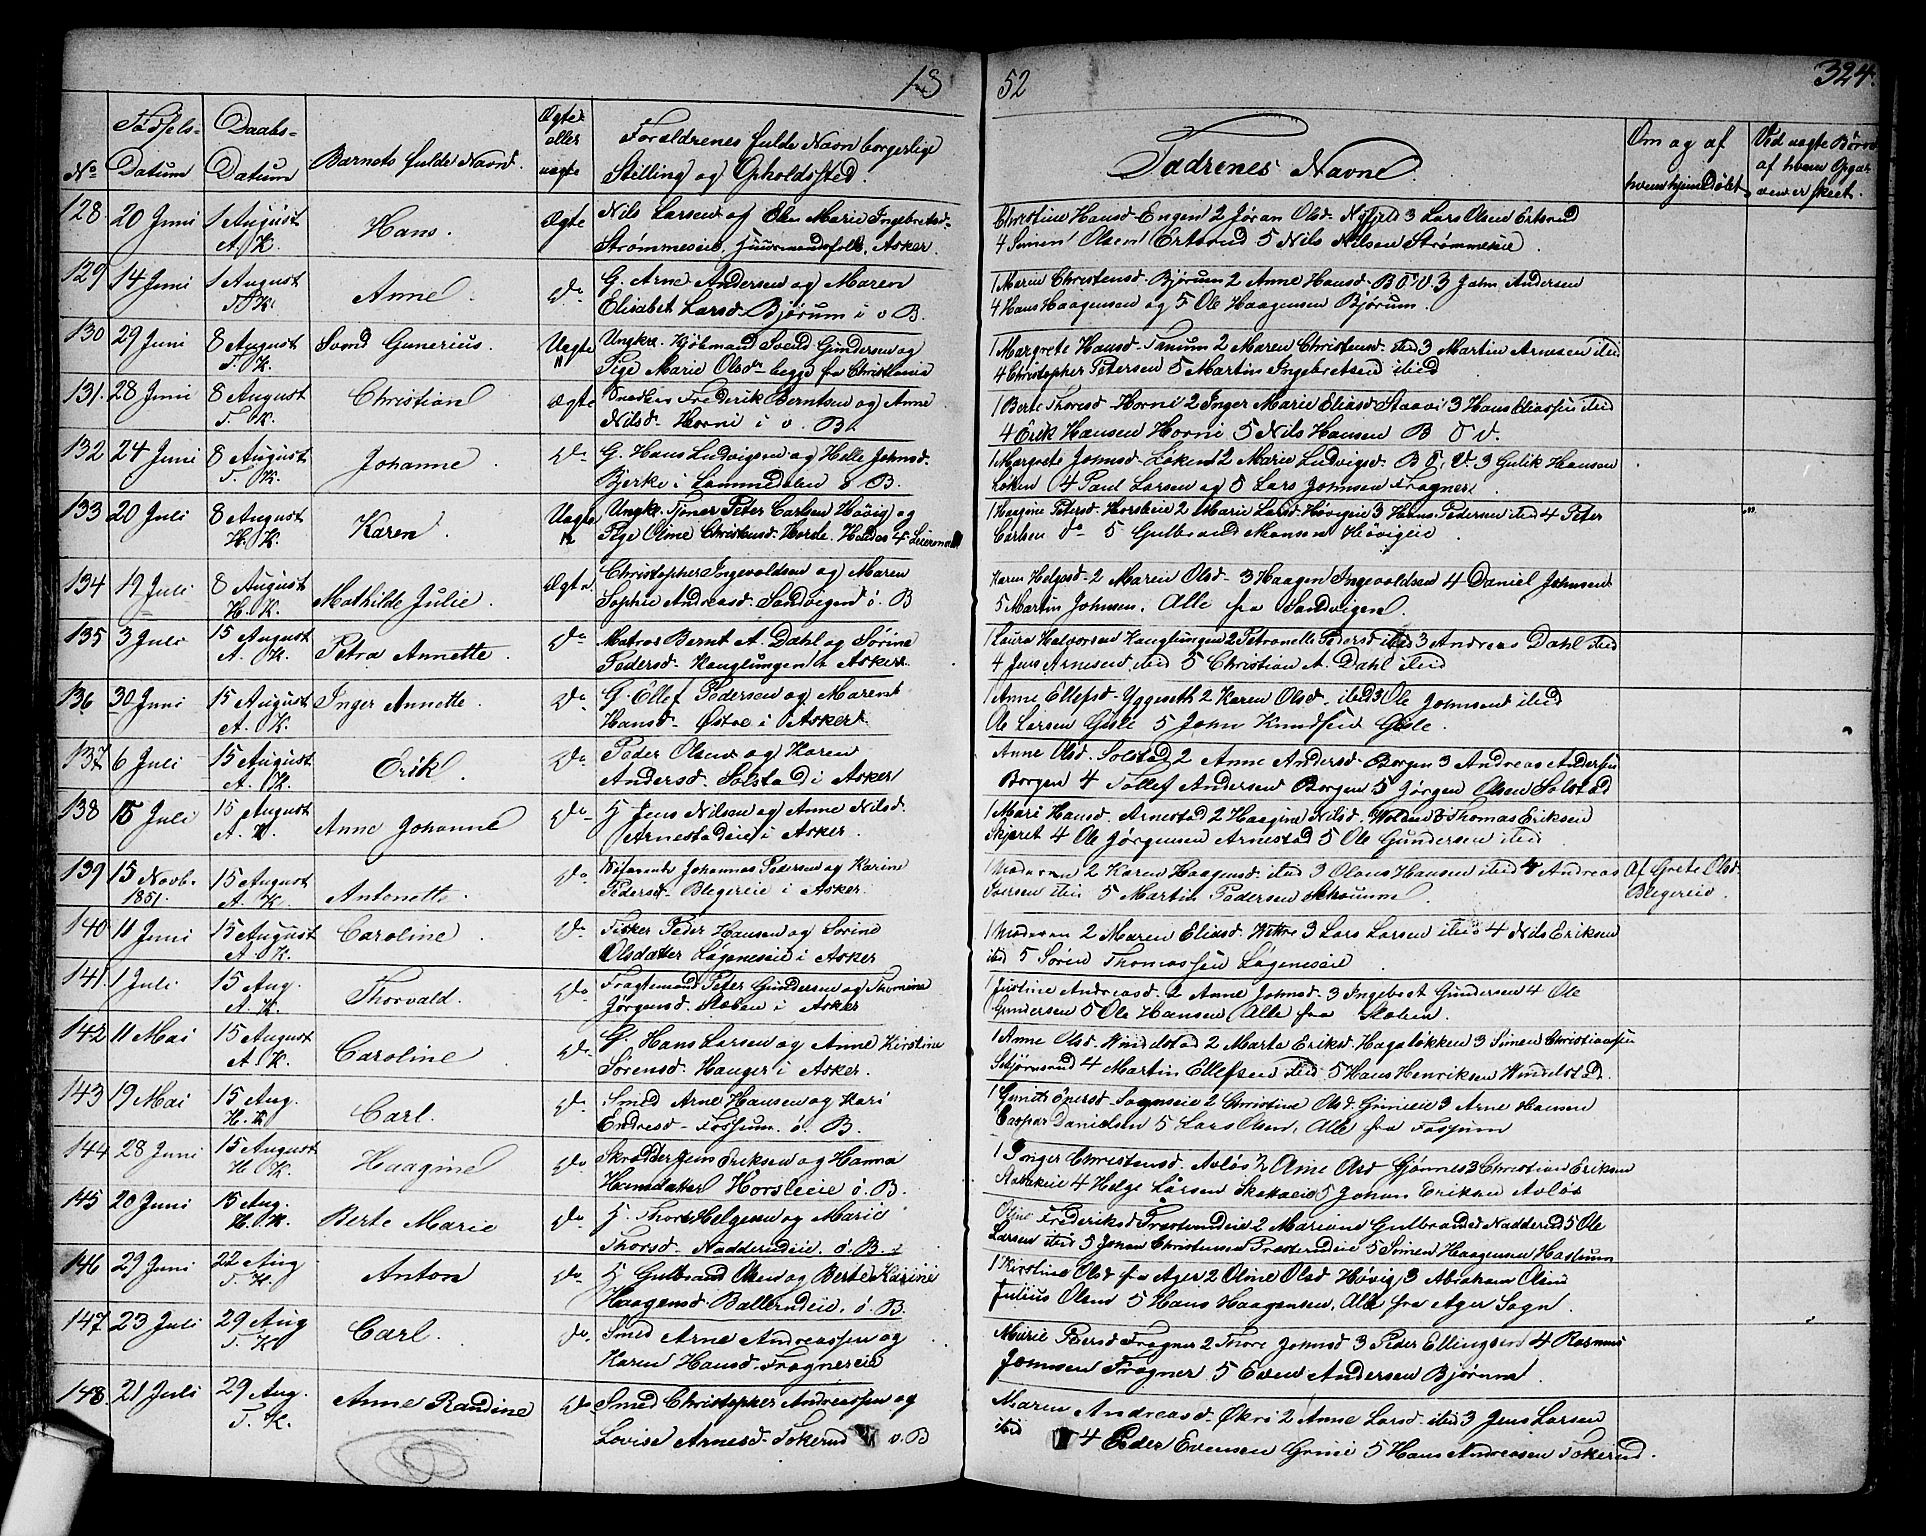 18
52
324.
No.
Fødsels-
Datum
Daabs-
Datum
Barnets fulde Navn.
Ægte
eller
uægte
Forældrenes fulde Navn borgerlige
Stilling og Opholdssted.
Fadrenes Navne
Om og af
hvem hjemdøbt
Ved uægte Børn
af hvem Opgav
en er skeet.
128. 20 Juni 1 August Hans. Ægte Nils Larsen og Elen Marie Ingebretsd.
A. K. Strømmeseie, Huusmandsfolk, Asker.
Christine Hansd. Engen 2 Jøran Olsd. 3 Lars Olsen Ertsrud
4 Simen Olsen Ertsrud 5 Nils Nilsen Strømmeseie.
129 14 Juni 1 August Anne. Do G. Arne Andersen og Maren
T. K. Elisabet Larsd. Bjørum i v B.
1 Maren Christensd. Bjørum 2 Anne Hansd. B 3 John Andersen
4 Hans Haagensen og 5 Ole Haagensen Bjørum.
130 29 Juni 8 August Svend Gunerius. Uægte Ungkr. Kjøbmand Svend Gundersen og
T. K. Pige Marie Olsdr begge fra Christiania
1 Margrete Hansd. Tanum 2 Maren Christensd. ibid 3 Martin Arnesen ibid
4 Christopher Petersen 5 Martin Ingebretsen ibid
131. 28 Juni 8 August Christian Ægte Frederik Berntsen og Anne
T. K. Nilsd. Horni i v. B.
1 Berte Thoresd. Horni 2 Inger Marie Eliasd. Staavi 3 Hans Eliassen ibid
4 Erik Hansen Horni 5 Nils Hansen B
132 24 Juni 8 August Johanne. Do G. Hans Ludvigsen og Helle Johnsd.
T. K. Bjerke i Lommedalen ø B.
1 Margrete Johnsd. Løken 2 Marie Ludvigsd. B 3 Gulik Hansen
Løken 4 Paul Larsen og 5 Lars Johnsen Fragner.
133 20 Juli 8 August Karen. Uægte Ungkr. Tjener Peter Carlsen Høvig og
H. K. Pige Oline Christensd.
Petersd. Horsleie 2 Marie Larsd. Høvigeie 3 Hans Pedersen ibid 4 Peter
Carlsen do 5 Gulbrand Hansen Høvigeie.
134 19 Juli 8 August Mathilde Julie. Ægte. Christopher Ingevoldsen og Maren
H. K. Sophie Andreasd. Sandvigen ø. B
Karen Helgesd. 2 Maren Olsd. 3 Haagen Ingevoldsen 4 Daniel Johnsen
5 Martin Johnsen. Alle fra Sandvigen.
135 3 Juli 15 August Petra Annette. Do Matros Bernt A. Dahl og Sørine
A. K. Pedersd. Hanglungen i Asker.
1 Laura Halvorsen Hanglungen 2 Petronelle Pedersd ibid 3 Andreas Dahl ibid
4 Jens Arnesen ibid 5 Christian A. Dahl ibid
136 30 Juni 15 August Inger Annette. Do G. Ellef Pedersen og Maren
A. K. Hansd. Østre i Asker.
1 Anne Ellefsd. Yggeseth 2 Karen Olsd. ibid 3 Ole Johnsen ibid
Ole Larsen Gisle 5 John Knudsen Gisle.
137 6 Juli 15 August Erik. Do Peder Olsen og Karen
A. K. Andersd. Solstad i Asker
Anne Olsd. Solstad 2 Anne Andersd. Borgen 3 Andreas Andersen
Borgen 4 Tollef Andersen Borgen 5 Jørgen Olsen Solstad
138 15 Juli 15 August Anne Johanne Do H Jens Nilsen og Anne Nilsd.
A. K. Arnestadeie i Asker.
1 Mari Hansd. Arnestad 2 Haagine Nilsd. 3 Thomas Eriksen
Skjæret 4 Ole Jørgensen Arnestad 5 Ole Gundersen ibid.
139 15 Novb. 15 August Antonette. Do Johannes Pedersen og Karine
1851. A. K. Pedersd. Blegereie i Asker.
1 Moderen 2 Karen Haagensd. ibid 3 Olaus Hansen ibid 4 Andreas
Iversen ibid 5 Martin Pedersen
Af Grete Olsd.
Blegereie
140 11 Juni 15 August Caroline. Do Fisker Peder Hansen og Sørine
A. K. Olsdatter Løgeneseie i Asker
1 Moderen 2 Maren Eliasd. 3 Lars Larsen ibid 4 Nils Eriksen
ibid 5 Søren Thomassen Løgeneseie
141. 1 Juli 15 Aug. Thorvald. Do Fragtemand Peter Gundersen og Thomine
A. K. Jørgensd. Slæben i Asker
1 Justine Andreasd. 2 Anne Johnsd. 3 Ingebret Gundersen 4 Ole
Gundersen 5 Ole Hansen, Alle fra Slæben.
142 11 Mai 15 August Caroline. Do G. Hans Larsen og Anne Kirstine
A. K. Sørensd. Hauger i Asker.
1 Anne Olsd. Windelstad 2 Marta Eriksd. Hagaløkken 3 Simen Christiansen
4 Martin Ellefsen ibid 5 Hans Henriksen Windelstad.
143 19 Mai 15 Aug. Carl. Do Smed Arne Hansen og Kari
H. K. Endresd. Fossum. ø. B.
2 Christine Olsd. Grinieie 3 Arne Hansen
Caspar Danielsen 5 Lars Olsen, Alle fra Fossum
144 28 Juni 15 August Haagine Do Skrædder Jens Eriksen og Hanna
H. K. Hansdatter Horsleeie ø. B.
1 Inger Christensd. Avløs 2 Anne Olsd. Gjønnes 3 Christian Eriksen
4 Helge Larsen 5 Johan Eriksen Avløs
145 20 Juni 15 Aug. Berte Marie Do H. Thore Helgesen og Marie
H. K. Thorsd. Nadderudeie. ø. B.
Oline Frederiksd Præsterudeie 2 Mariane Gulbrandsd Nadderud
Larsen ibid 5 Johan Christensen Præsterudeie 5 Simen Haagensen Haslum
146 29 Juni 22 Aug Anton Do H Gulbrand Olsen og Berte Karine
T. K. Haagensd. Ballerudeie. ø. B.
1 Kirstine Olsd. fra Ager 2 Oline Olsd. Høvig 3 Abraham Olsen
Julius Olsen 5 Hans Haagensen, Alle fra Ager Sogn.
147 23 Juli 29 Aug Carl. do. Smed Arne Andreassen og
T. K. Karen Hansd. Fragnereie
Marie Pedersd Fragner 2 Thore Johnsd 3 Peder Ellingsen 4 Rasmus
Johnsen Fragner 5 Even Andersen Bjørum.
148. 21 Juli 29 Aug. Anne Randine Do Smed Christopher Andreassen og
T. K. Lovise Arnesd. Tokerud v. B
Maren Andreasd. Økri 2 Anne Larsd. ibid 3 Jens Larsen
ibid 4 Peder Evensen Grini 5 Hans Andersen Tokerud.